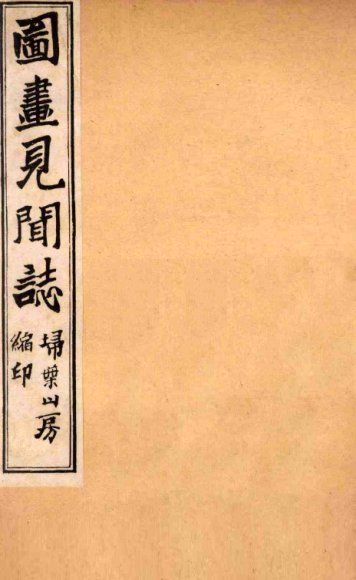 圖畫見聞誌
埽葉山房
縮印